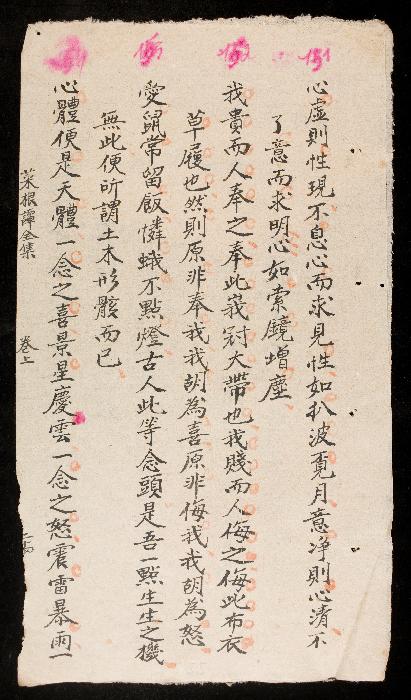 151
心虛則性現不息心而求見性如扒波覔月意净則心清不
了意而求明心如索鏡增塵
152
我貴而人奉之奉此峩冠大帶也我賤而人侮之侮此布衣
草履也然則原非奉我我胡為喜原非侮我我胡為怒
153
愛鼠常留飯憐蛾不點燈古人此等念頭是吾一點生生之機
無此便所謂土木形骸而已
心體便是天體一念之喜景星慶雲一念之怒震雷暴雨一
菜根譚全集
卷上